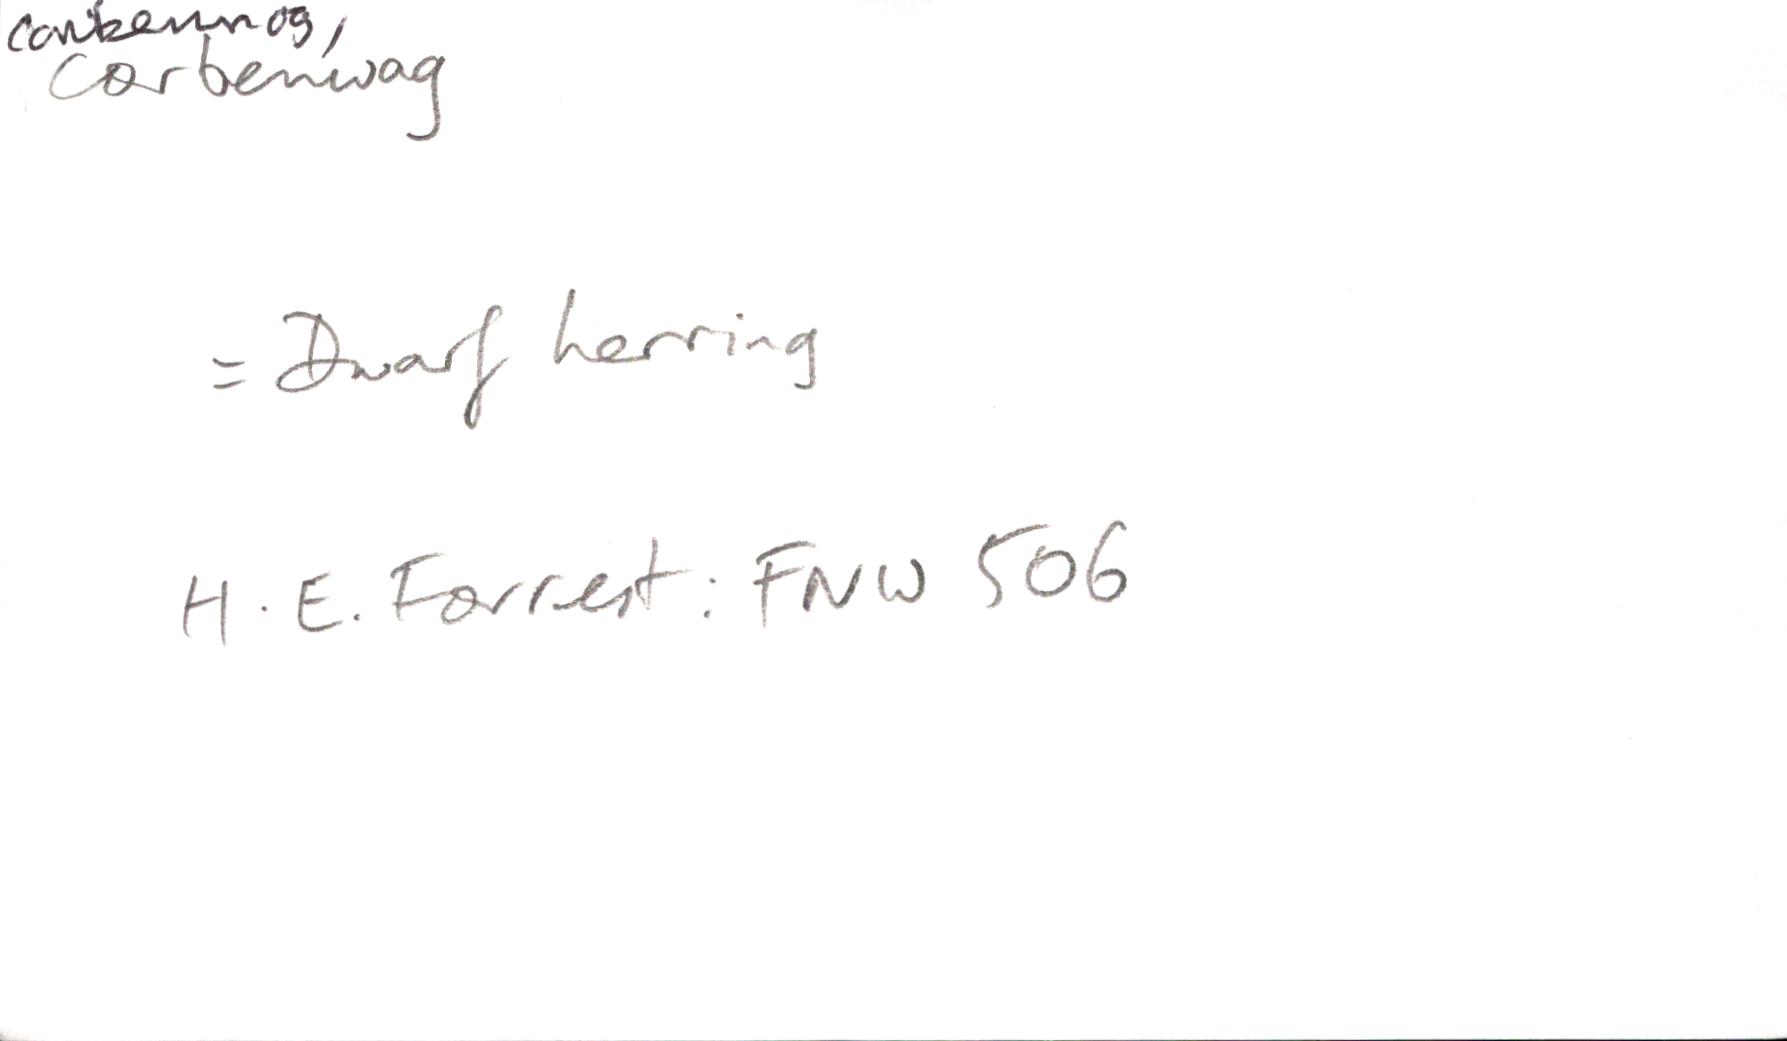 corbennog,
Corbenwag
= Dwarf herring
H. E. Forrest: FNW 506